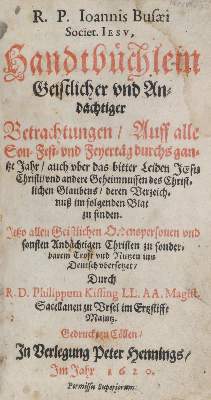 R. P. Ioannis Busæi
Societ. Iesv,
Handtbüchlein
Geistlicher vnd An-
dächtiger
Betrachtungen / Auff alle
Son-Fest- vnd Feyertäg durchs gan-
tze Jahr / auch vber das bitter Leiden Jesu
Christi / vnd andere Geheimnussen des Christ-
lichen Glaubens / deren Verzeich-
nuß im folgenden Blat
zu finden.
Jetzo allen Geistlichen Ordenspersonen vnd
sonsten Andächtigen Christen zu sonder-
barem Trost vnd Nutzen ins
Deutsch vbersetzet /
Durch
R. D. Philippum Kissing LL. AA. Magist.
Sacellanen zu Vrsel im Ertzstifft
Maintz.
Gedruckt zu Cöllen /
In Verlegung Peter Hennings /
Im Jahr 1620.
Permissu Superiorum.